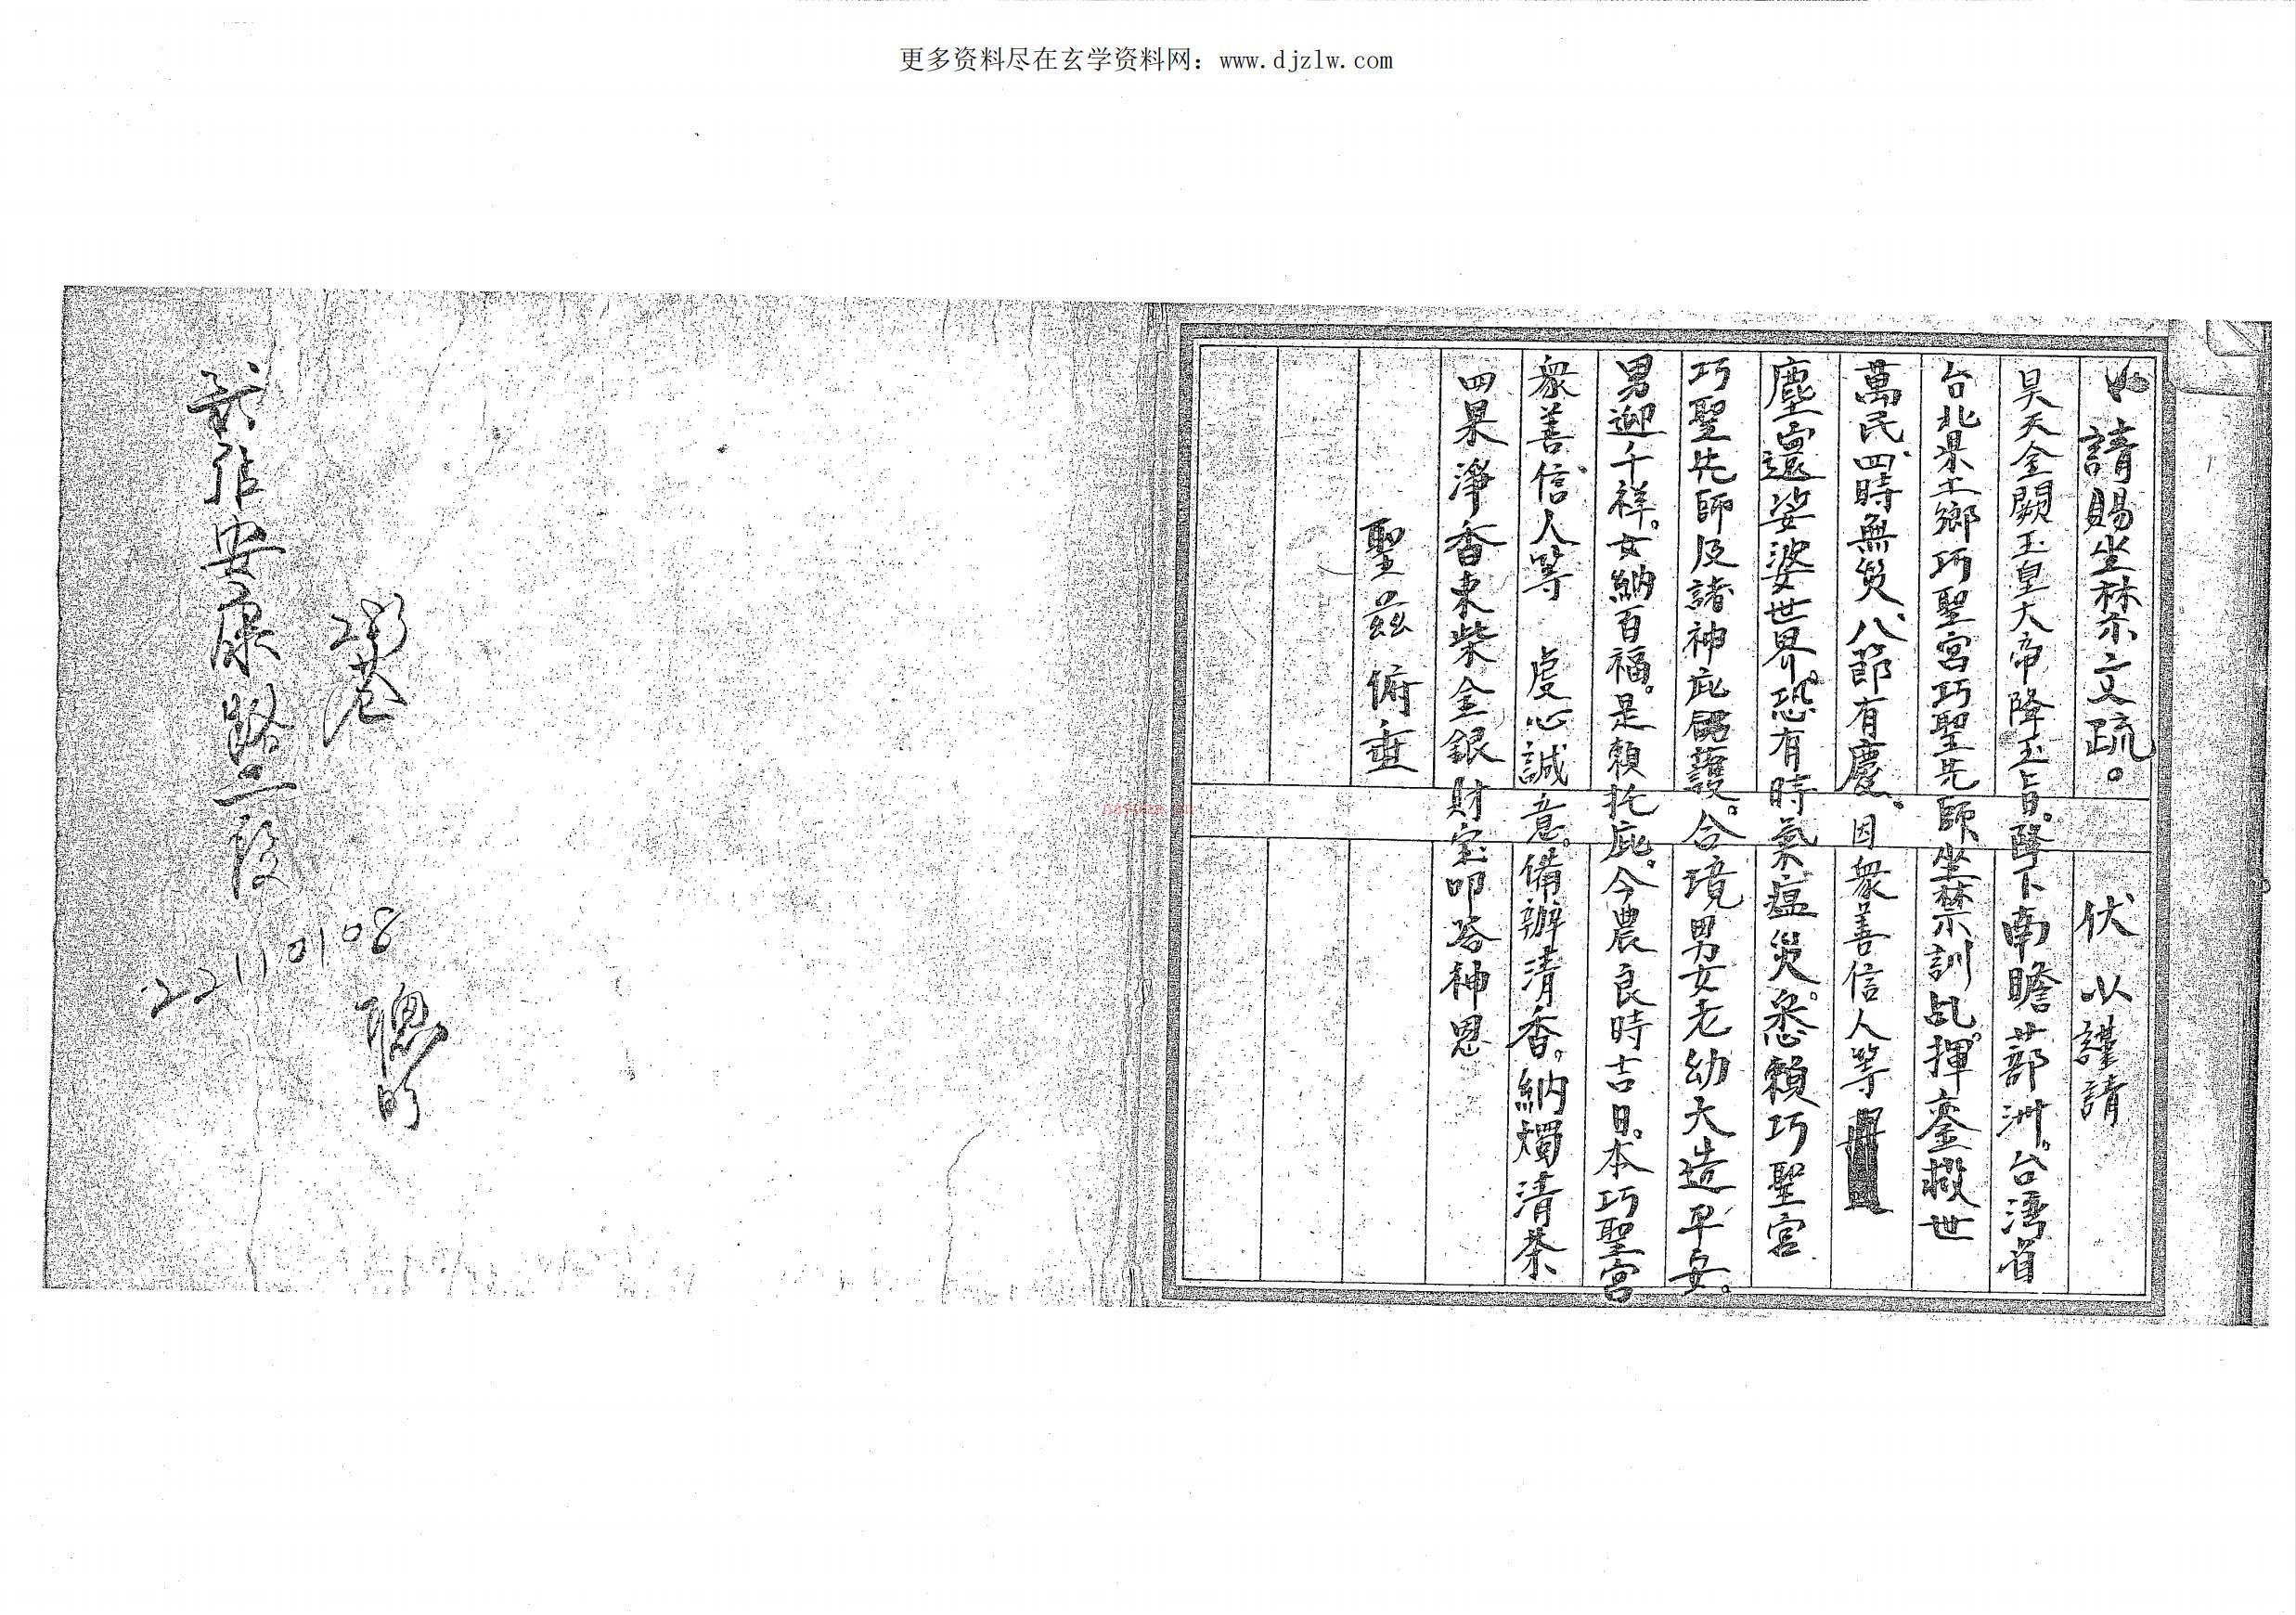 更多资料尽在玄学资料网：www.djzlw.com
請賜坐禁文疏。 伏以謹請
昊天金闕玉皇大帝降玉旨。降下南瞻蔀洲。台湾省
台北県土鄉巧聖宮巧聖先師坐禁訓乩。揮鸞救世
萬民。四時無災。八節有慶。因衆善信人等
塵寰娑婆世界。恐有時氣瘟災。悉賴巧聖宮
巧聖先師及諸神庇護。合境男女老幼大造平安。
男迎千祥。女納百福。是賴托庇。今農良時吉日。本巧聖宮
衆善信人等 虔心誠意。備辦清香。納燭清茶
四果淨香東柴金銀財宝叩答神恩
聖茲俯垂
安康路二段
巷
22110108
聰明